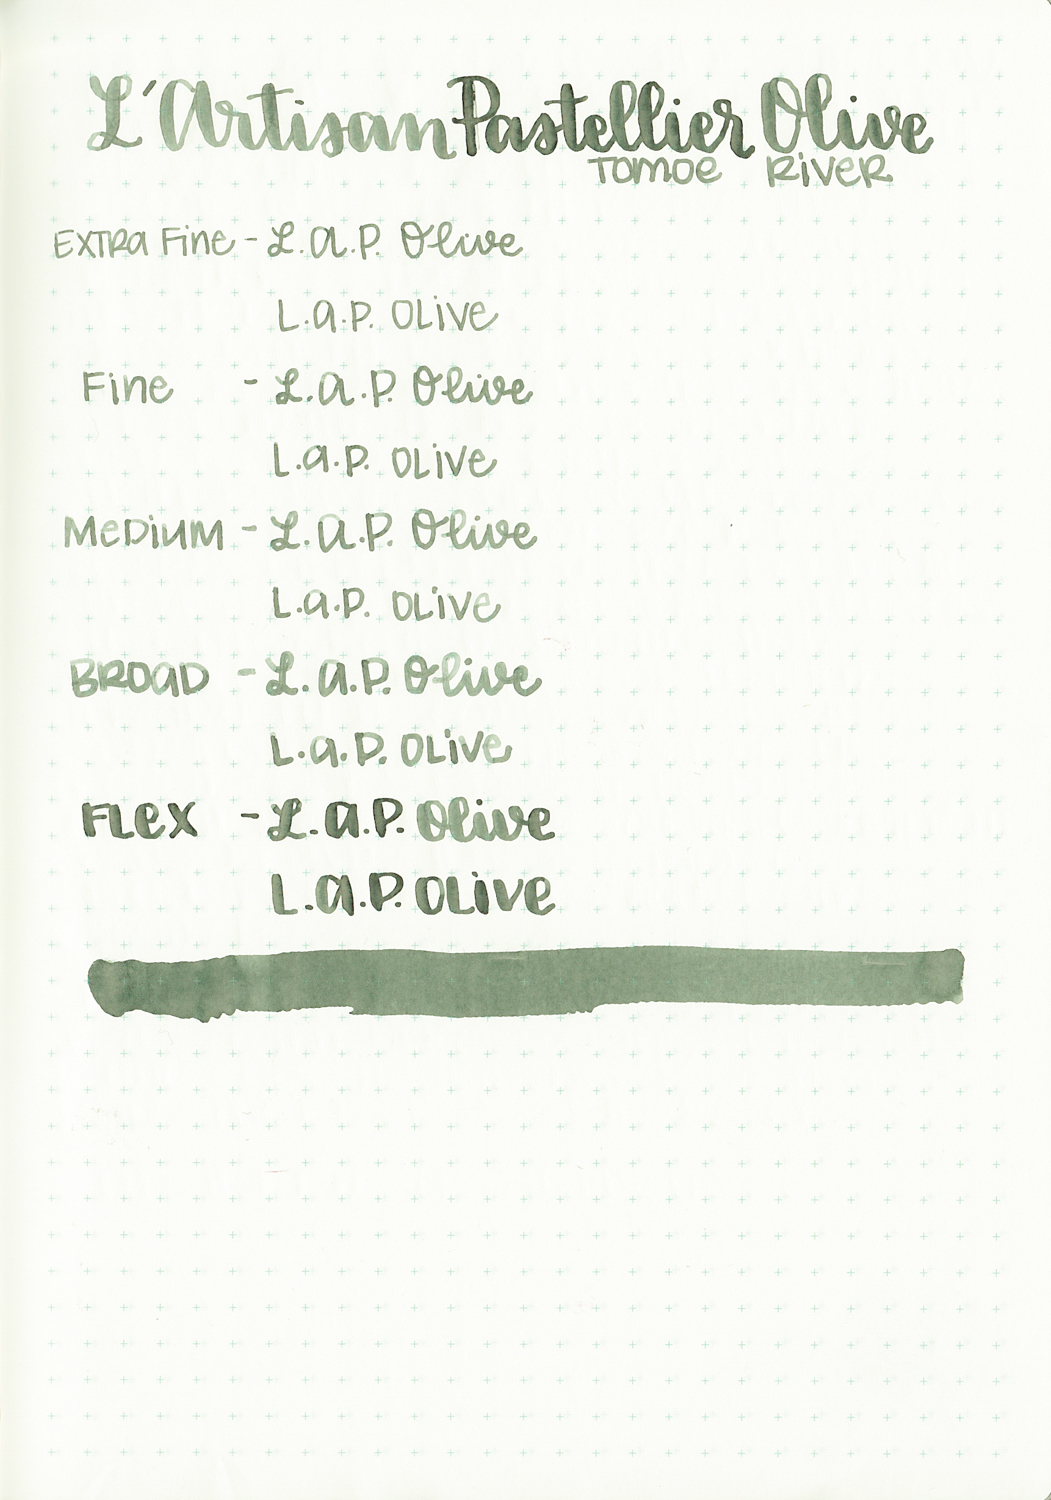 L'Artisan Pastellier Olive
Tomoe River
Extra Fine - L.A.P. Olive
L.A.P. Olive
Fine - L.A.P. Olive
L.A.P. Olive
Medium - L.A.P. Olive
L.A.P. Olive
Broad - L.A.P. Olive
L.A.P. Olive
Flex - L.A.P. Olive
L.A.P. Olive